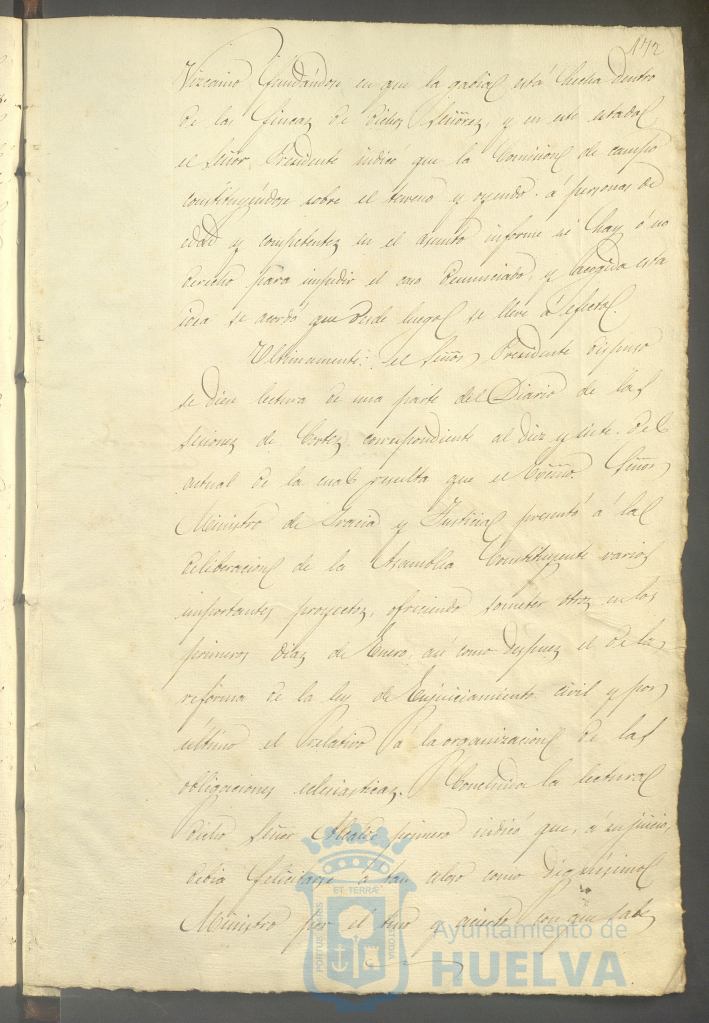 172
Vizcaino fundándose en que la gavia está hecha dentro
de las fincas de dichos Señores, y en este estado
el Señor Presidente indicó que la Comision de campo
constituyéndose sobre el terreno y oyendo á personas de
edad y competentes en el asunto informe si hay ó no
derecho para impedir el uso denunciado, y acogida esta
idea se acordó que desde luego se lleve á efecto.
Ultimamente: el Señor Presidente dispuso
se diese lectura de una parte del Diario de las
sesiones de Cortes correspondiente al diez y siete del
actual de la cual resulta que el Señor
Ministro de Gracia y Justicia presentó á la
deliberacion de la Asamblea Constituyente varios
importantes proyectos, ofreciendo someter otros en los
primeros dias de Enero, asi como despues el de la
reforma de la ley de Enjuiciamiento civil y por
último el relativo á la organizacion de las
obligaciones eclesiasticas. Concluida la lectura
dicho Señor Alcalde primero indicó que, á su juicio,
debia felicitarse á tan celoso como dignísimo
Ministro por el tino y acierto con que sabe
PORTUS MARIS
ET TERRAE
CUSTODIA
Ayuntamiento de
HUELVA